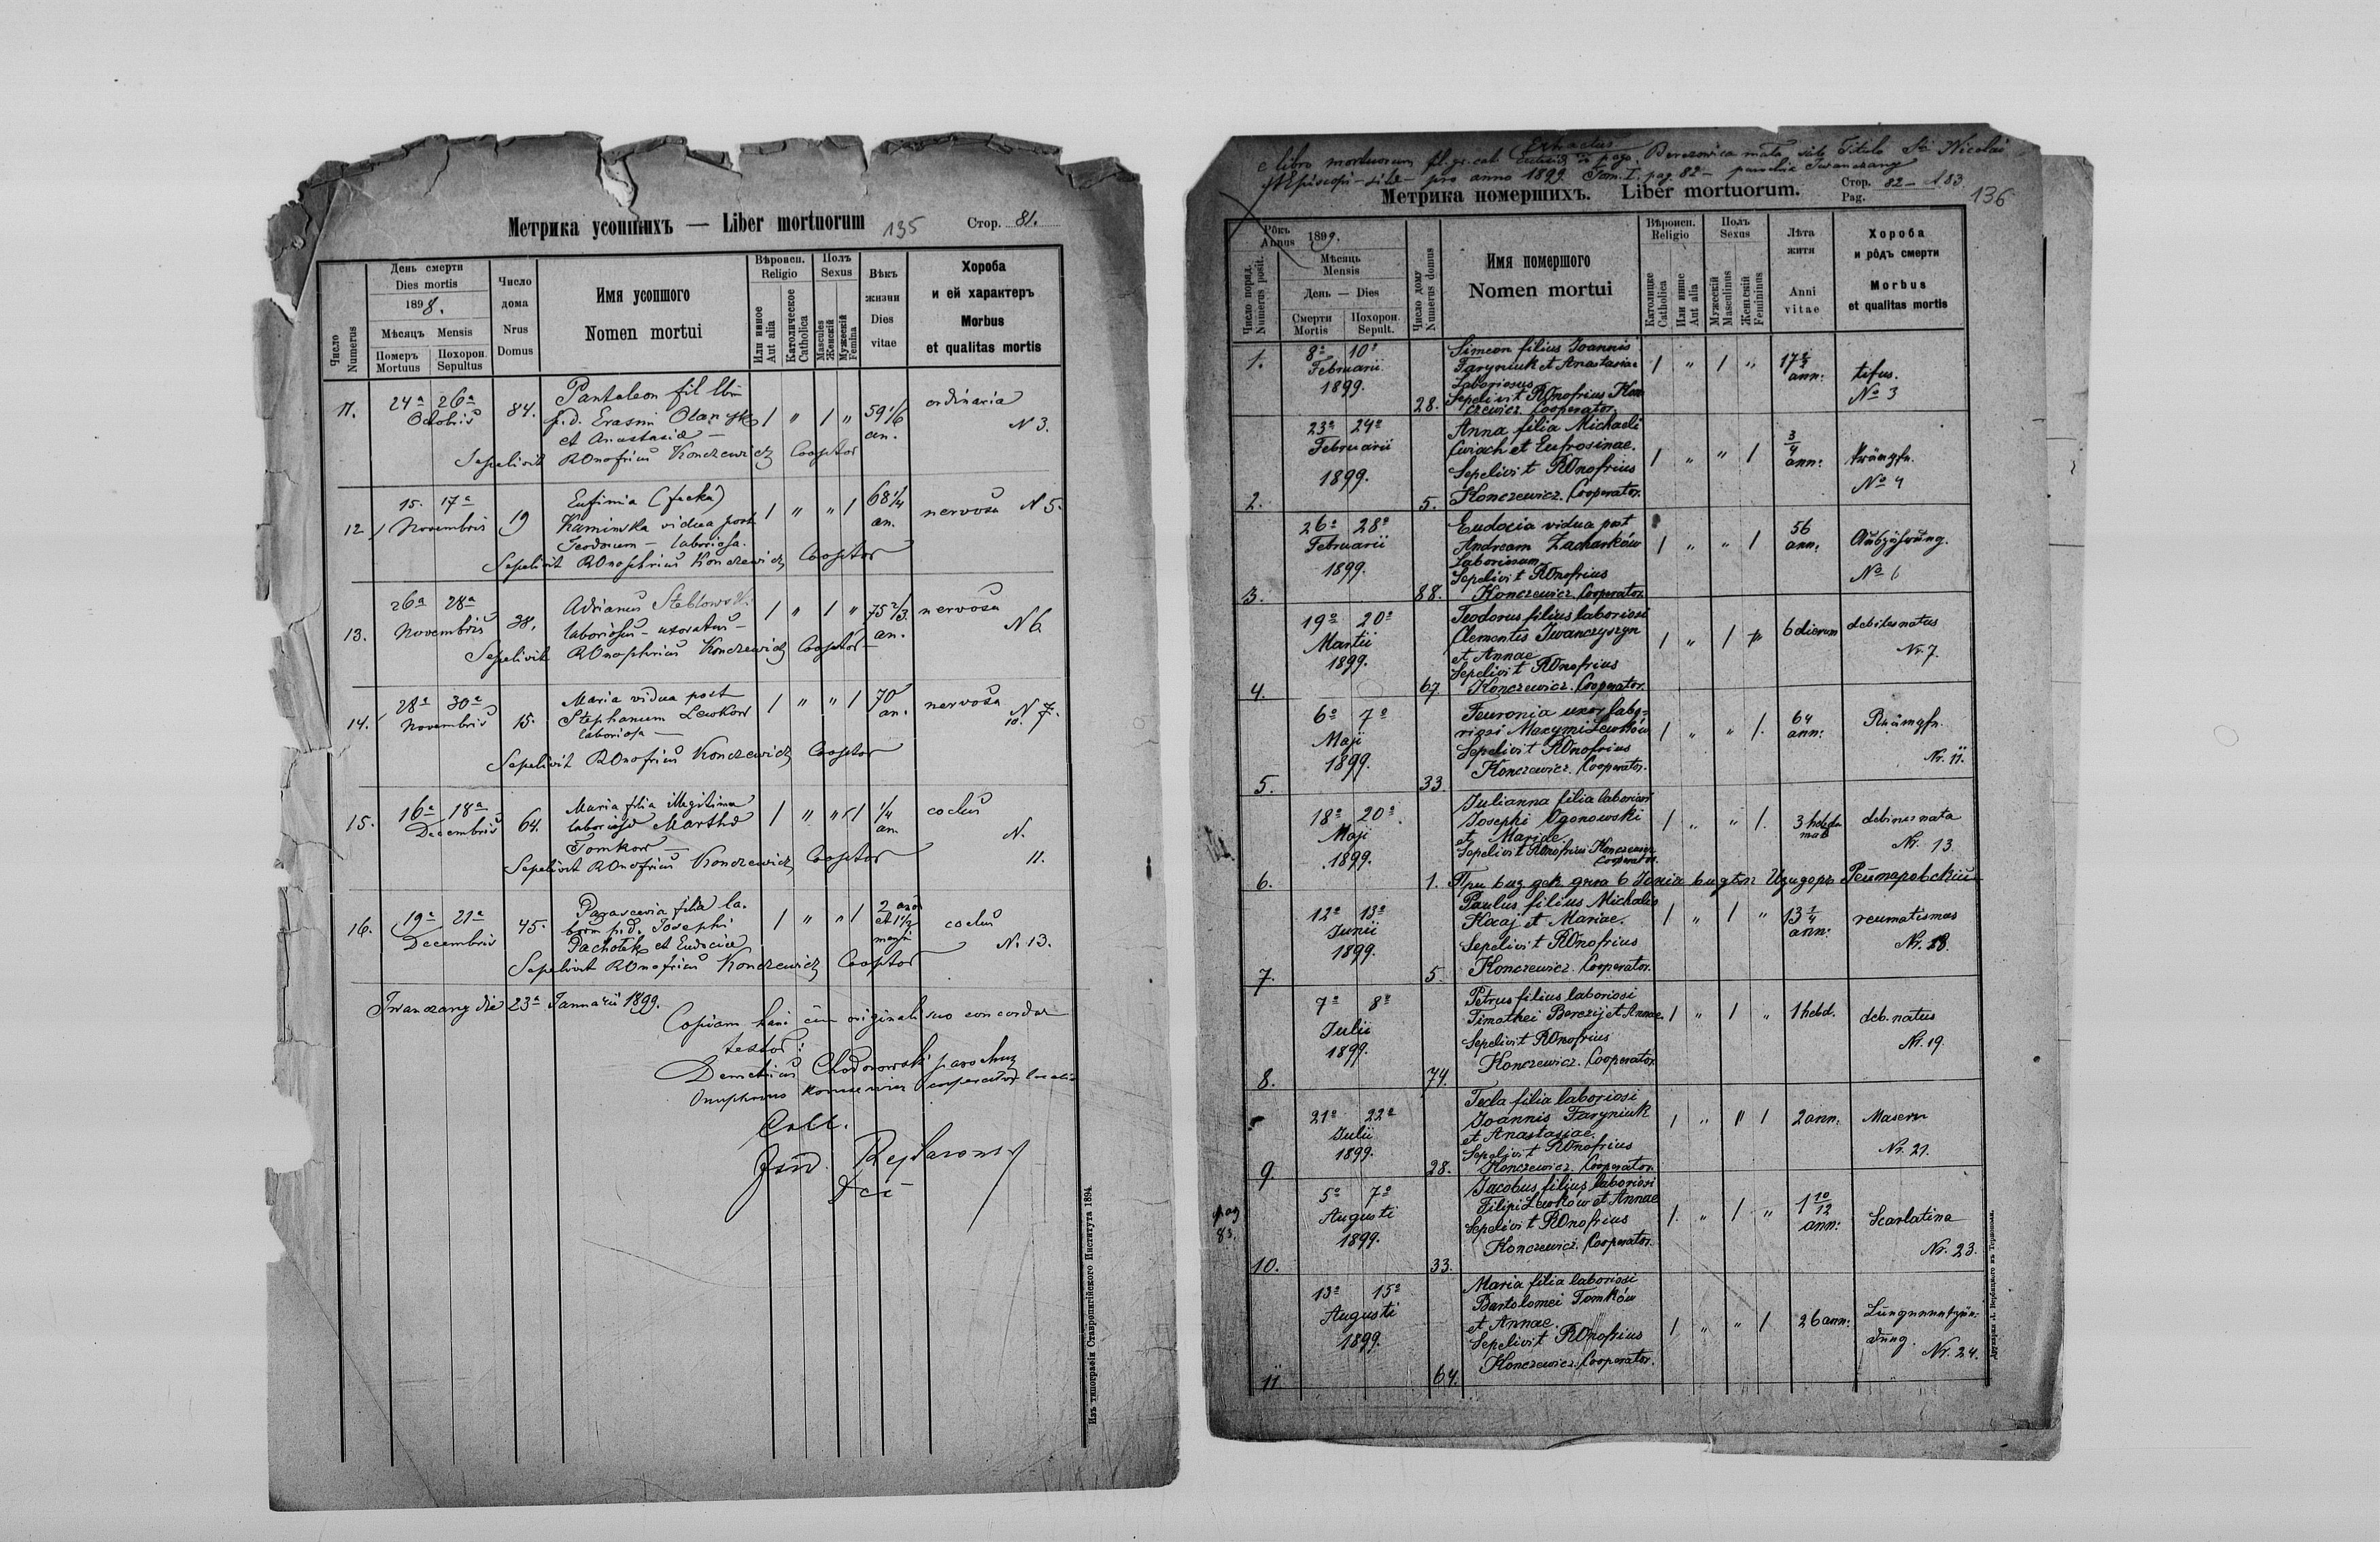 Метрика усопшихъ — Liber mortuorum
135
Стор. 81.
Число
Numerus
День смерти
Dies mortis
1898.
Мѣсяцъ Mensis
Померъ
Mortuus
Похорон.
Sepultus
Число
дома
Nrus
Domus
Имя усопшого
Nomen mortui
Вѣроисп.
Religio
Или ивное
Aut alia
Католическое
Catholica
Полъ
Sexus
Mascules
Женскій
Мужескій
Femina
Вѣкъ
жизни
Dies
vitae
Хороба
и ей характеръ
Morbus
et qualitas mortis
11. 24a 26a Octobris 84.
Pantaleon fil
p.d. Erasmi
et Anastasia —
1 " 1 " 59 1/6 an.
ordinaria
N 3.
Sepelivit ROnofrius Konczewicz Cooptor
12. 15. 17a Novembris 19
Eufimia
Kaminska vidua post
Teodorum — laboriosa.
1 " " 1 68 1/4 an.
nervosa N 5.
Sepelivit ROnophrius Konczewicz Cooptor
13. 26a 28a Novembris 38.
Adrianus Steblowski
laboriosus — uxoratus —
1 " 1 " 75 2/3 an.
nervosa
N 6.
Sepelivit ROnophrius Konczewicz Cooptor —
14. 28a 30a Novembris 15.
Maria vidua post
Stephanum Lewkow
laboriosa —
1 " " 1 70 an.
nervosa
N 7.
10.
Sepelivit ROnofrius Konczewicz Cooptor
15. 16a 18a Decembris 64.
Maria filia illegitima
laboriosa Martha
Tomkow —
1 " " 1 1/4 an.
N.
11.
Sepelivit ROnofrius Konczewicz Cooptor
16. 19a 21a Decembris 45.
Parascevia filia la-
p.d. Josephi
et Eudocia
1 " " 1
N. 13.
Sepelivit ROnofrius Konczewicz Cooptor
Iwanczany die 23a Januarii 1899.
Copiam hanc cum originali suo concordar
testor:
Demetrius Chodorowski parochus
Onuphrius cooperator
Coll.
Изъ типографіи Ставропигійского Института 1894.
Extractus
e libro mortuorum gr. cat. pago Berezowica mała sub Titulo Sti Nicolai
pro anno 1899. Tom. I. pag. 82 — Iwanczany
Метрика помершихъ. Liber mortuorum.
Стор.
Pag.
82 — 83
136
Число поряд.
Numerus posit.
Рôкъ
Annus
1899.
Мѣсяць
Mensis
День — Dies
Смерти
Mortis
Похорон.
Sepult.
Число дому
Numerus domus
Имя помершого
Nomen mortui
Вѣроисп.
Religio
Католицке
Catholica
Или инше
Aut alia
Полъ
Sexus
Мужескій
Masculinus
Женьскій
Femininus
Лѣта
житя
Anni
vitae
Хороба
и рôдъ смерти
Morbus
et qualitas mortis
1. 8a 10a Februarii 1899. 28.
Simeon filius Joannis
Faryniuk et Anastasiae
Laboriosus
Sepelivit ROnofrius Kon
czewicz Cooperator.
1 " 1 " ann:
tifus.
No 3
2. 23a 24a Februarii 1899. 5.
Anna filia Michaeli
et Eufrosinae.
Sepelivit ROnofrius
Konczewicz. Cooperator.
1 " " 1 3/4 ann:
No 4
3. 26a 28a Februarii 1899. 88.
Eudocia vidua post
Andream Zacharków
Laboriosum
Sepelivit ROnofrius
Konczewicz. Cooperator.
1 " " 1 56 ann:
Auszehrung.
No 6
4. 19a 20a Martii 1899. 67
Teodorus filius laboriosi
Clementis Iwanczyszyn
et Annae
Sepelivit ROnofrius
Konczewicz. Cooperator.
1 " 1 " 6 dierum
debilis natus
Nr. 7.
5. 6a 7a Maji 1899. 33.
Feuronia uxor labo-
riosi Maxymi Lewków
Sepelivit ROnofrius
Konczewicz. Cooperator.
1 " " 1. 64 ann:
Nr. 11.
6. 18a 20a Maji 1899. 1.
Julianna filia laboriosi
Josephi Ogonowski
et Mariae
Sepelivit ROnofrius Konczewicz
Cooperator.
1 " " 1. 3
nata
Nr. 13.
При виз. дек. дня 6 Юнія видѣл Исидоръ Рейтаровскій
7. 12a 13a Junii 1899. 5.
Paulus filius Michaelis
Kocaj et Mariae.
Sepelivit ROnofrius
Konczewicz. Cooperator.
1 " 1 " 13 1/4 ann:
reumatismus
Nr. 18.
8. 7a 8a Julii 1899. 74.
Petrus filius laboriosi
Timothei Berezij et Annae.
Sepelivit ROnofrius
Konczewicz. Cooperator.
1 " 1 " 1 hebd.
deb. natus
Nr. 19.
9. 21a 22a Julii 1899. 28.
Tecla filia laboriosi
Joannis Faryniuk
et Anastasiae.
Sepelivit ROnofrius
Konczewicz. Cooperator.
1 " " 1 2 ann.
Masern
Nr. 21.
pag
83.
10. 5a 7a Augusti 1899. 33.
Jacobus filius laboriosi
Filipi Lewków et Annae
Sepelivit ROnofrius
Konczewicz. Cooperator.
1. " 1 " 1 10/12 ann:
Scarlatina
Nr. 23.
11. 13a 15a Augusti 1899. 64.
Maria filia laboriosi
Bartolomei Tomków
et Annae.
Sepelivit ROnofrius
Konczewicz. Cooperator.
1 " " 1 26 ann:
Lungenentzün-
dung.
Nr. 24.